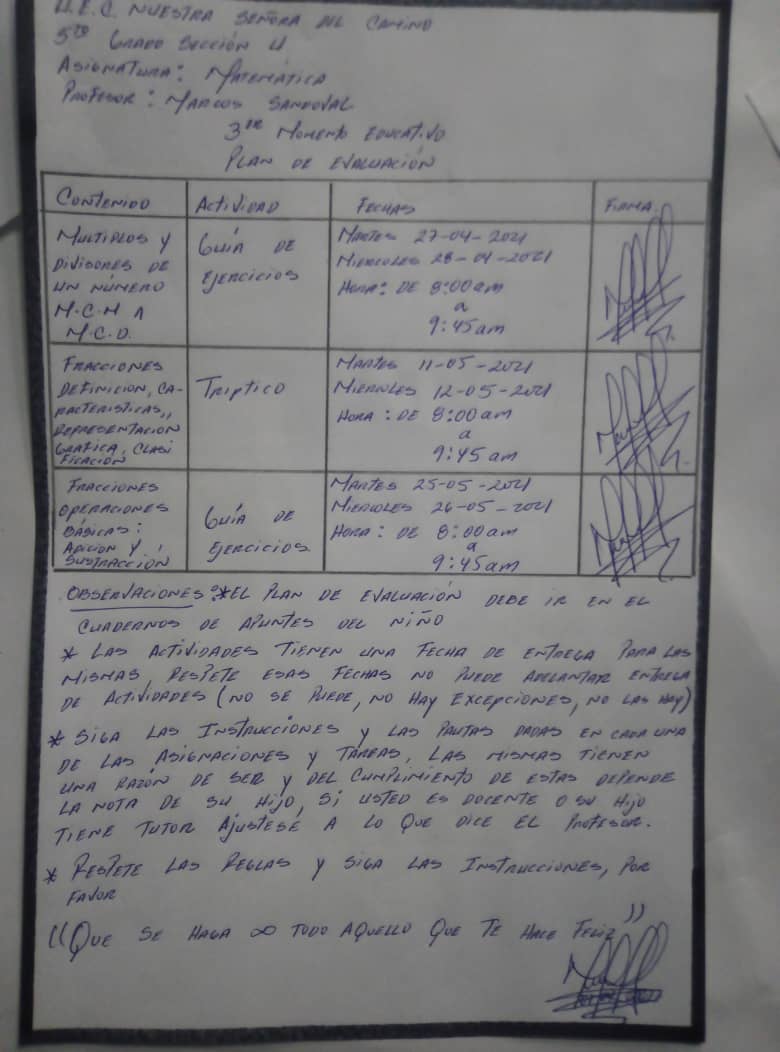 U.E.C. NUESTRA SEÑORA DEL CAMINO
5TO GRADO SECCIÓN U
ASIGNATURA: MATEMÁTICA
PROFESOR: MARCOS SANDOVAL
3ER MOMENTO EDUCATIVO
PLAN DE EVALUACIÓN
CONTENIDO ACTIVIDAD FECHAS FIRMA
MULTIPLOS Y
DIVISORES DE
UN NÚMERO
M.C.M Λ
M.C.D.
GUÍA DE
EJERCICIOS
MARTES 27-04-2021
MIERCOLES 28-04-2021
HORA: DE 8:00am
a
9:45am
FRACCIONES
DEFINICIÓN, CA-
RACTERISTICAS,,
REPRESENTACIÓN
GRAFICA, CLASI
FICACIÓN
TRIPTICO
MARTES 11-05-2021
MIERCOLES 12-05-2021
HORA: DE 8:00am
a
9:45am
FRACCIONES
OPERACIONES
BÁSICAS:
ADICIÓN Y
SUSTRACCIÓN
GUÍA DE
EJERCICIOS
MARTES 25-05-2021
MIERCOLES 26-05-2021
HORA: DE 8:00am
a
9:45am
OBSERVACIONES: *EL PLAN DE EVALUACIÓN DEBE IR EN EL
CUADERNOS DE APUNTES DEL NIÑO
* LAS ACTIVIDADES TIENEN UNA FECHA DE ENTREGA PARA LAS
MISMAS, RESPETE ESAS FECHAS NO PUEDE ADELANTAR ENTREGA
DE ACTIVIDADES (NO SE PUEDE, NO HAY EXCEPCIONES, NO LAS HAY)
* SIGA LAS INSTRUCCIONES Y LAS PAUTAS DADAS EN CADA UNA
DE LAS ASIGNACIONES Y TAREAS, LAS MISMAS TIENEN
UNA RAZÓN DE SER Y DEL CUMPLIMIENTO DE ESTAS DEPENDE
LA NOTA DE SU HIJO, SI USTED ES DOCENTE O SU HIJO
TIENE TUTOR AJUSTESÉ A LO QUE DICE EL PROFESOR.
* RESPETE LAS REGLAS Y SIGA LAS INSTRUCCIONES, POR
FAVOR
"QUE SE HAGA ∞ TODO AQUELLO QUE TE HACE FELIZ"